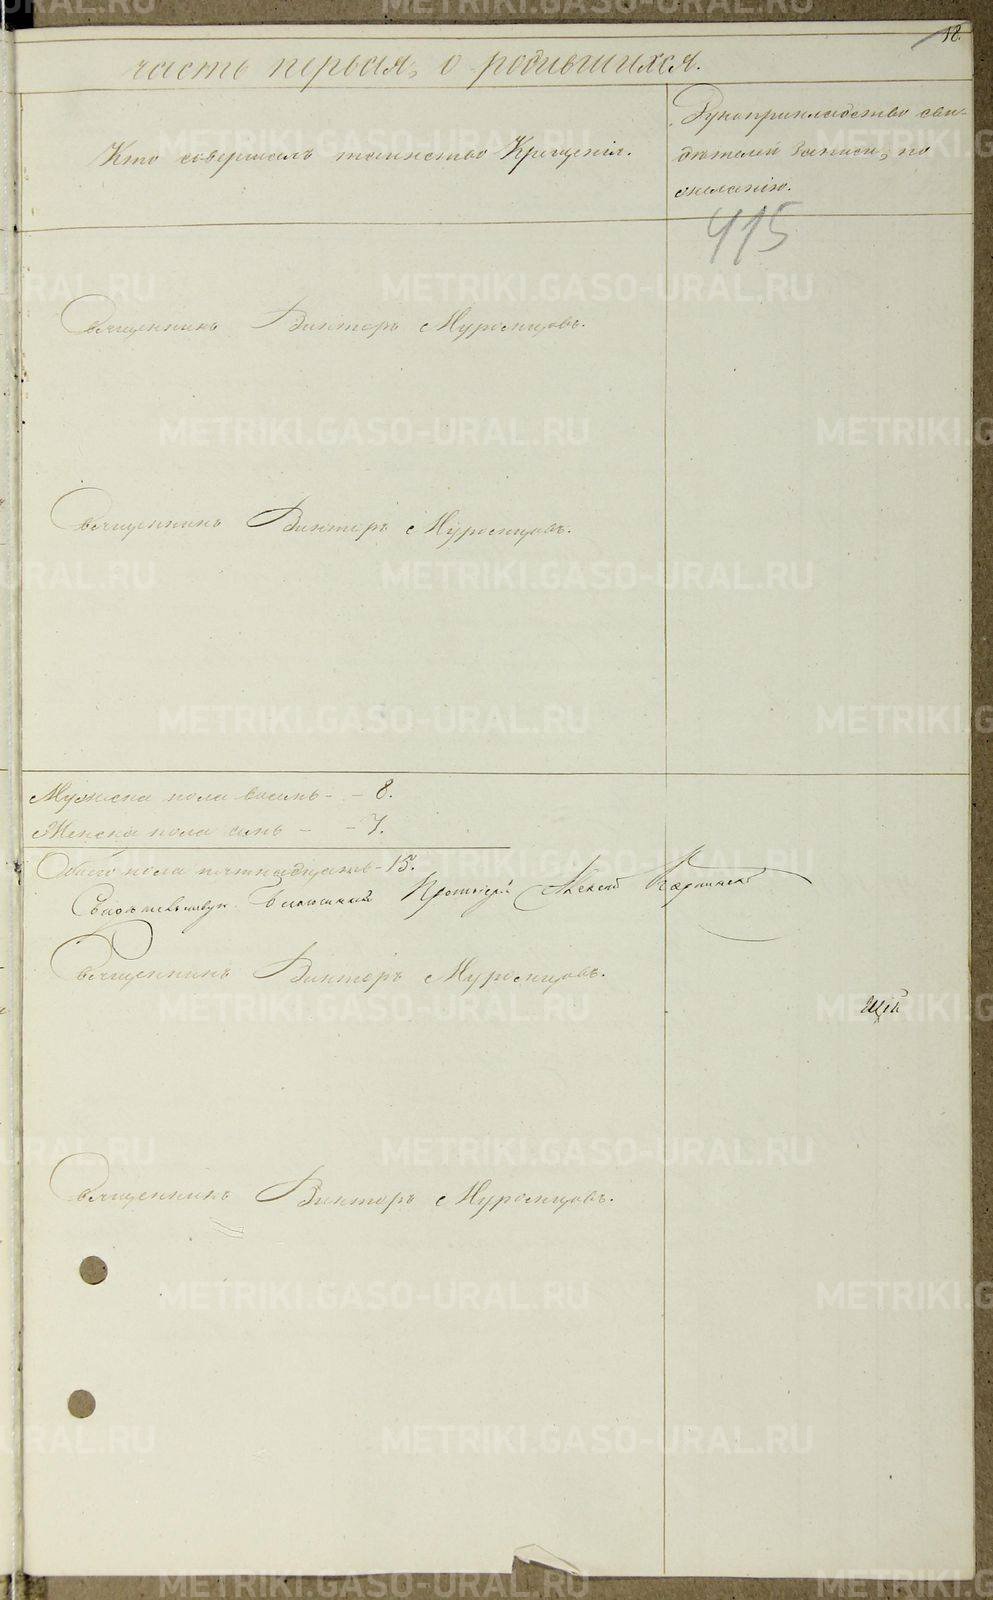 18.
часть первая, о родившихся.
Кто совершалъ таинство Крещенія.
Рукоприкладство сви-
дѣтелей записи, по
желанію.
415
Священникъ Викторъ Муромцовъ.
Священникъ Викторъ Муромцовъ.
Мужска пола восемь - - 8.
Женска пола семь - - 7.
Обоего пола пятнадцать - 15.
Протоіерей Алексій
Священникъ Викторъ Муромцовъ.
Священникъ Викторъ Муромцовъ.
METRIKI.GASO-URAL.RU